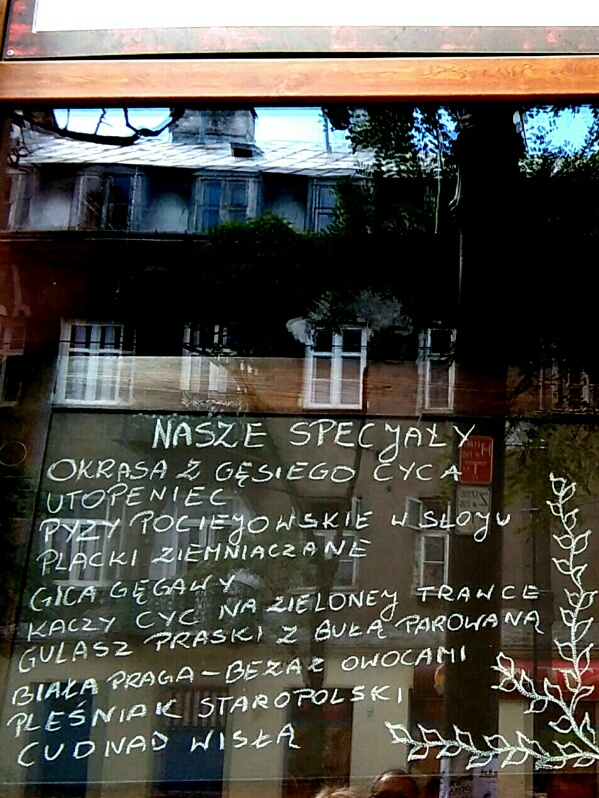 NASZE SPECJAŁY
OKRASA Z GĘSIEGO CYCA
UTOPENIEC
PYZY POCIEJOWSKIE W SŁOJU
PLACKI ZIEMNIACZANE
GICA GĘGAWY
KACZY CYC NA ZIELONEJ TRAWCE
GULASZ PRASKI Z BUŁĄ PAROWANĄ
BIAŁA PRAGA - BEZA Z OWOCAMI
PLEŚNIAK STAROPOLSKI
CUD NAD WISŁĄ